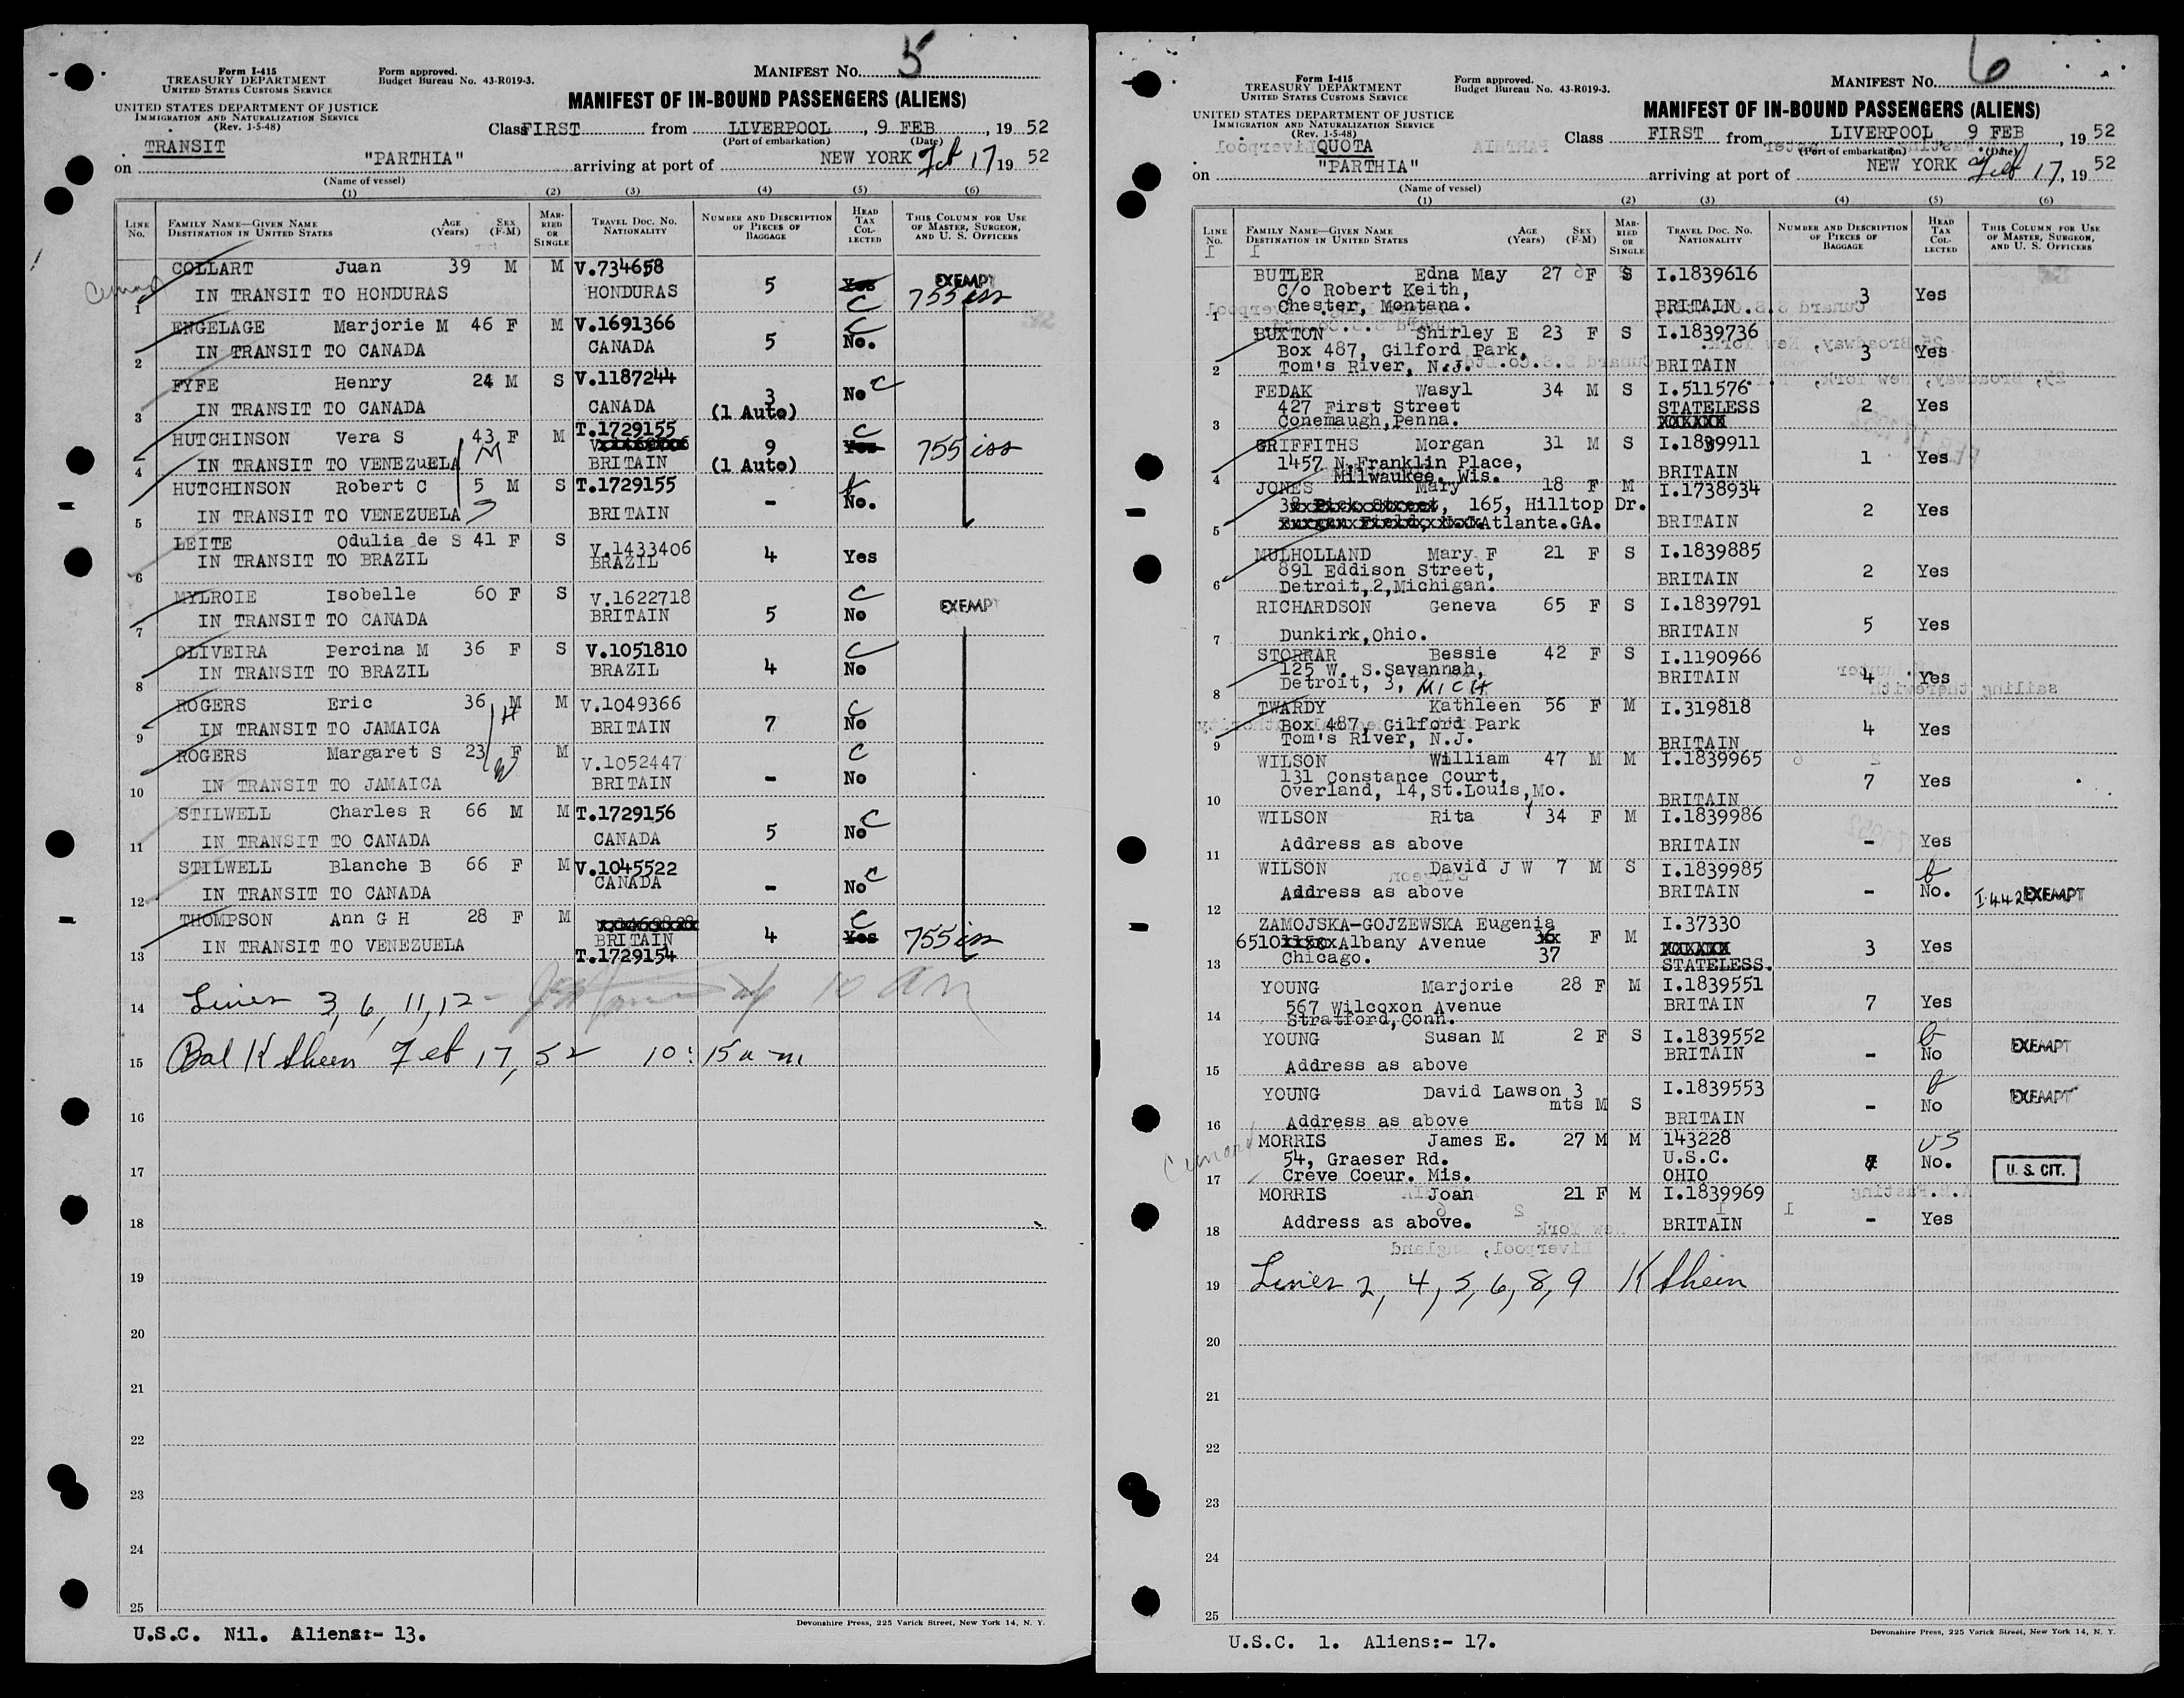 5
Form I-415
TREASURY DEPARTMENT
UNITED STATES CUSTOMS SERVICE
Form approved.
Budget Bureau No. 43-R019-3.
MANIFEST No.
UNITED STATES DEPARTMENT OF JUSTICE
IMMIGRATION AND NATURALIZATION SERVICE
(Rev. 1-5-48)
MANIFEST OF IN-BOUND PASSENGERS (ALIENS)
Class FIRST from LIVERPOOL, 9 FEB, 1952
(Port of embarkation) (Date)
TRANSIT
on "PARTHIA" arriving at port of NEW YORK Feb 17 19 52
(Name of vessel)
(1) (2) (3) (4) (5) (6)
LINE No.
FAMILY NAME—GIVEN NAME
DESTINATION IN UNITED STATES
AGE (Years)
SEX (F-M)
MARRIED OR SINGLE
TRAVEL DOC. NO. NATIONALITY
NUMBER AND DESCRIPTION OF PIECES OF BAGGAGE
HEAD TAX COLLECTED
THIS COLUMN FOR USE OF MASTER, SURGEON, AND U. S. OFFICERS
COLLART Juan 39 M M V.734658 EXEMPT
1 IN TRANSIT TO HONDURAS HONDURAS 5 Yes C 755 iss
ENGELAGE Marjorie M 46 F M V.1691366 C
2 IN TRANSIT TO CANADA CANADA 5 No.
FYFE Henry 24 M S V.1187244 3 No C
3 IN TRANSIT TO CANADA CANADA (1 Auto)
HUTCHINSON Vera S 43 F M T.1729155 9 C Yes 755 iss
4 IN TRANSIT TO VENEZUELA M BRITAIN (1 Auto)
HUTCHINSON Robert C 5 M S T.1729155 - No.
5 IN TRANSIT TO VENEZUELA S BRITAIN
LEITE Odulia de S 41 F S V.1433406 4 Yes
6 IN TRANSIT TO BRAZIL BRAZIL
MYLROIE Isobelle 60 F S V.1622718 C EXEMPT
7 IN TRANSIT TO CANADA BRITAIN 5 No
OLIVEIRA Percina M 36 F S V.1051810 C
8 IN TRANSIT TO BRAZIL BRAZIL 4 No
ROGERS Eric 36 M M V.1049366 C
9 IN TRANSIT TO JAMAICA H BRITAIN 7 No
ROGERS Margaret S 23 F M V.1052447 C
10 IN TRANSIT TO JAMAICA W BRITAIN - No
STILWELL Charles R 66 M M T.1729156 C
11 IN TRANSIT TO CANADA CANADA 5 No
STILWELL Blanche B 66 F M V.1045522 C
12 IN TRANSIT TO CANADA CANADA - No
THOMPSON Ann G H 28 F M C
13 IN TRANSIT TO VENEZUELA BRITAIN 4 Yes 755 iss
T.1729154
14 Lines 3, 6, 11, 12 - 10 am
15 Bal K Shein Feb 17, 52 10:15 a m
16
17
18
19
20
21
22
23
24
25
Devonshire Press, 225 Varick Street, New York 14, N. Y.
U.S.C. Nil. Aliens:- 13.
6
Form I-415
TREASURY DEPARTMENT
UNITED STATES CUSTOMS SERVICE
Form approved.
Budget Bureau No. 43-R019-3.
MANIFEST No.
UNITED STATES DEPARTMENT OF JUSTICE
IMMIGRATION AND NATURALIZATION SERVICE
(Rev. 1-5-48)
MANIFEST OF IN-BOUND PASSENGERS (ALIENS)
Class FIRST from LIVERPOOL 9 FEB, 1952
(Port of embarkation) (Date)
QUOTA
on "PARTHIA" arriving at port of NEW YORK Feb 17, 19 52
(Name of vessel)
(1) (2) (3) (4) (5) (6)
LINE No.
FAMILY NAME—GIVEN NAME
DESTINATION IN UNITED STATES
AGE (Years)
SEX (F-M)
MARRIED OR SINGLE
TRAVEL DOC. NO. NATIONALITY
NUMBER AND DESCRIPTION OF PIECES OF BAGGAGE
HEAD TAX COLLECTED
THIS COLUMN FOR USE OF MASTER, SURGEON, AND U. S. OFFICERS
BUTLER Edna May 27 F S I.1839616
C/o Robert Keith, 3 Yes
1 Chester, Montana. BRITAIN
BUXTON Shirley E 23 F S I.1839736
Box 487, Gilford Park, 3 Yes
2 Tom's River, N.J. BRITAIN
FEDAK Wasyl 34 M S I.511576
427 First Street STATELESS 2 Yes
3 Conemaugh, Penna.
GRIFFITHS Morgan 31 M S I.1839911
1457 N.Franklin Place, 1 Yes
4 Milwaukee. Wis. BRITAIN
JONES Mary 18 F M I.1738934
165, Hilltop Dr. 2 Yes
5 Atlanta.GA. BRITAIN
MULHOLLAND Mary F 21 F S I.1839885
891 Eddison Street, 2 Yes
6 Detroit,2,Michigan. BRITAIN
RICHARDSON Geneva 65 F S I.1839791
7 Dunkirk,Ohio. BRITAIN 5 Yes
STORRAR Bessie 42 F S I.1190966
125 W. S.Savannah, BRITAIN 4 Yes
8 Detroit, 3, MICH
TWARDY Kathleen 56 F M I.319818
Box 487, Gilford Park 4 Yes
9 Tom's River, N.J. BRITAIN
WILSON William 47 M M I.1839965
131 Constance Court, 7 Yes
10 Overland, 14,St.Louis,Mo. BRITAIN
WILSON Rita 34 F M I.1839986
11 Address as above BRITAIN - Yes
WILSON David J W 7 M S I.1839985
12 Address as above BRITAIN - No. I-442 EXEMPT
ZAMOJSKA-GOJZEWSKA Eugenia F M I.37330
6510 Albany Avenue 37 3 Yes
13 Chicago. STATELESS.
YOUNG Marjorie 28 F M I.1839551
567 Wilcoxon Avenue BRITAIN 7 Yes
14 Stratford,Conn.
YOUNG Susan M 2 F S I.1839552
BRITAIN - No EXEMPT
15 Address as above
YOUNG David Lawson 3 mts M S I.1839553
- No EXEMPT
16 Address as above BRITAIN
Cunard MORRIS James E. 27 M M 143228 US
54, Graeser Rd. U.S.C. No. U. S. CIT.
17 Creve Coeur. Mis. OHIO
MORRIS Joan 21 F M I.1839969
18 Address as above. BRITAIN - Yes
19 Lines 2, 4, 5, 6, 8, 9 K Shein
20
21
22
23
24
25
Devonshire Press, 225 Varick Street, New York 14, N. Y.
U.S.C. 1. Aliens:- 17.